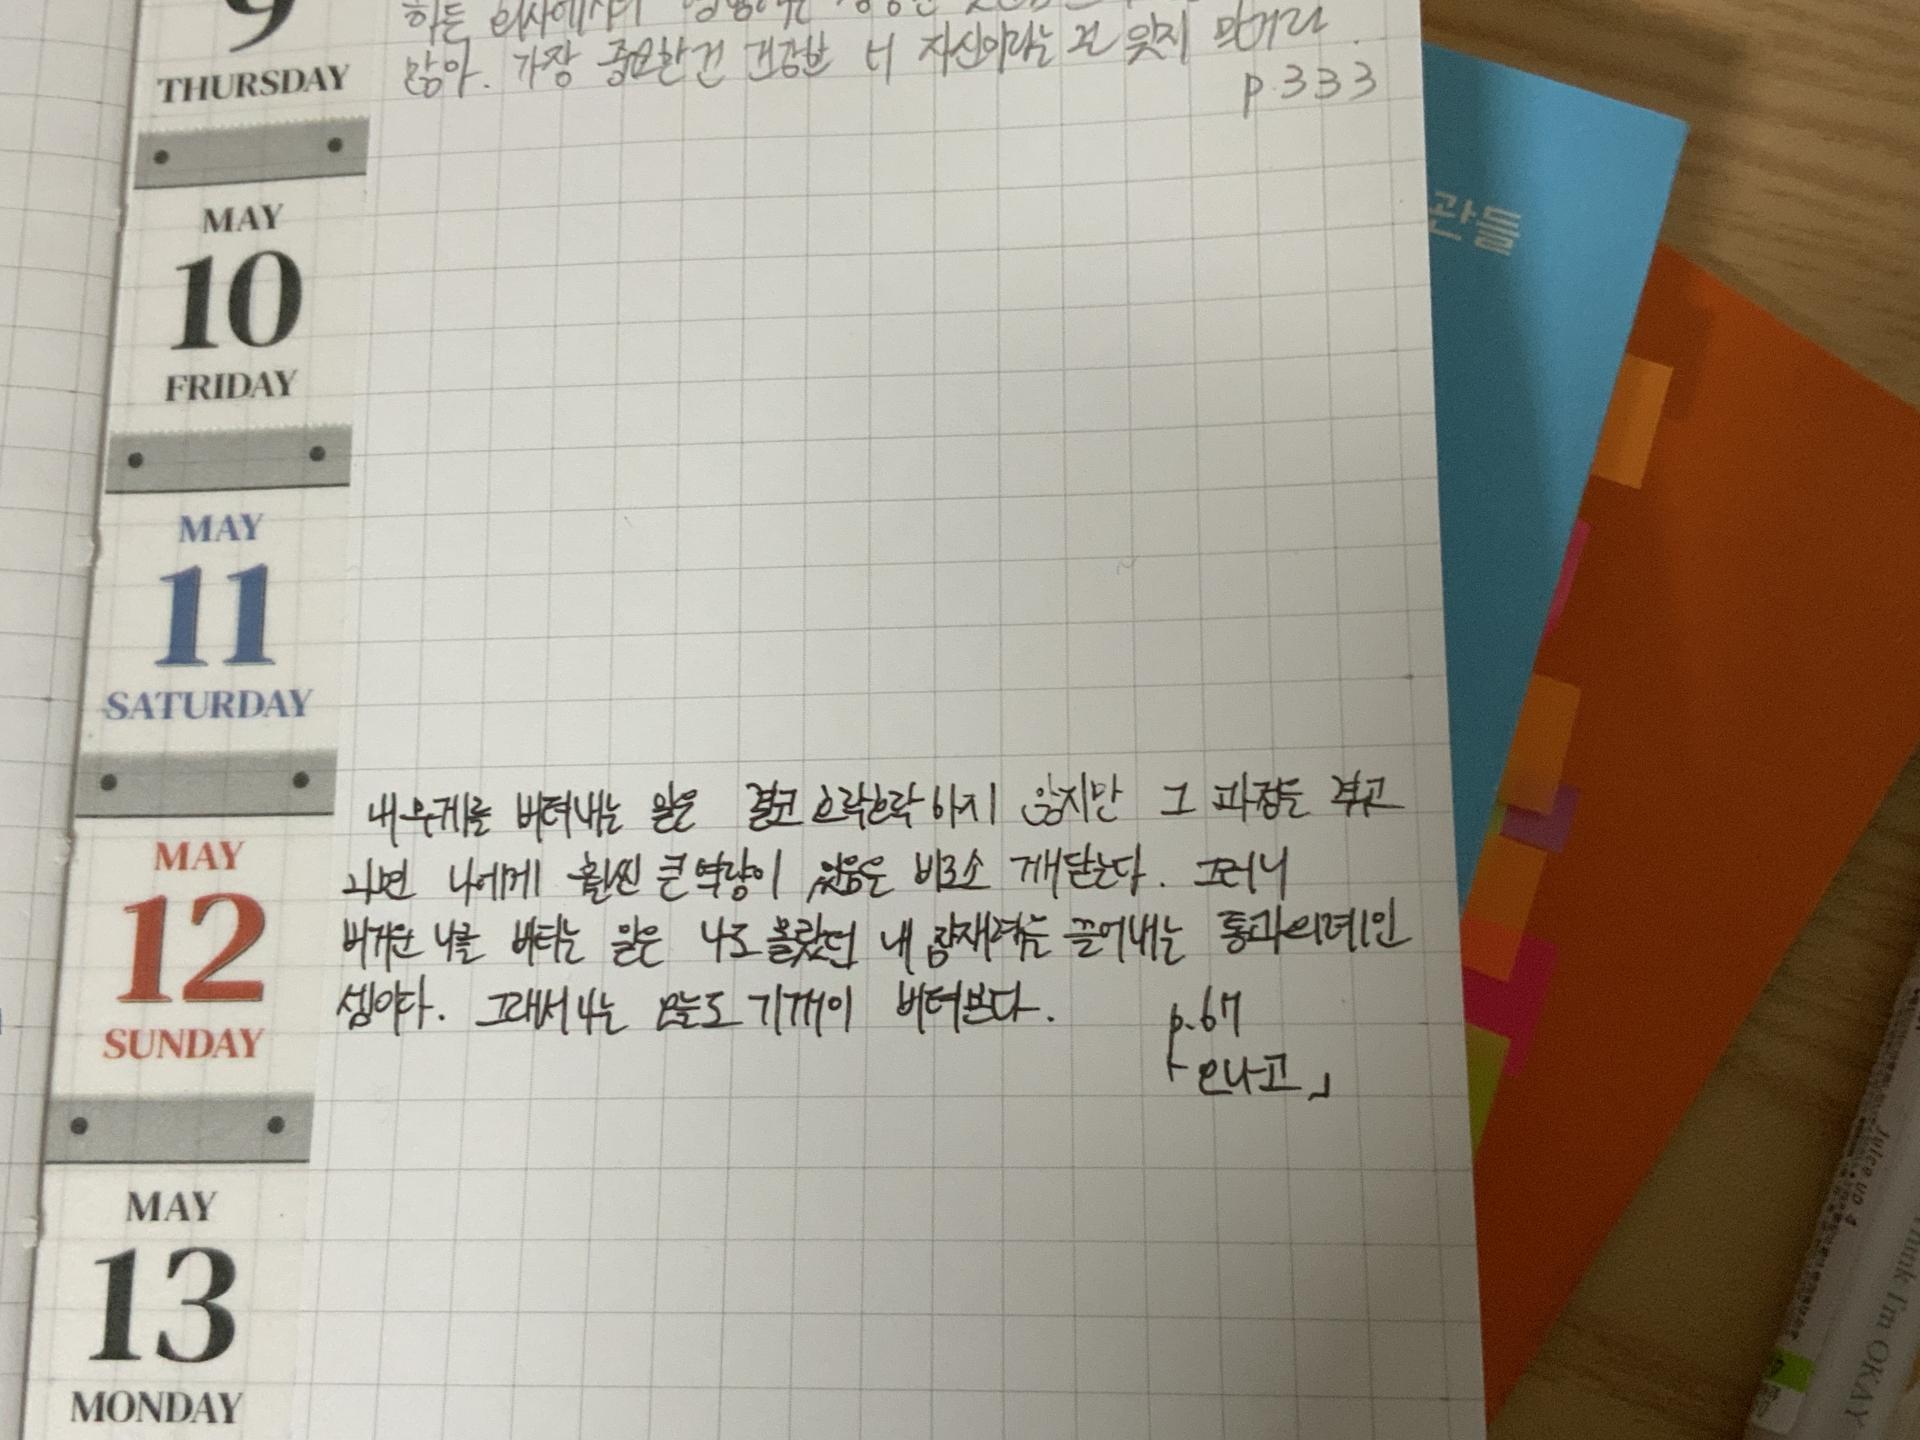 9
THURSDAY
많아. 가장 중요한건 건강한 너 자신이라는 걸 잊지 말거라.
p.333
MAY
10
FRIDAY
MAY
11
SATURDAY
MAY
12
SUNDAY
내 무게를 버텨내는 일은 결코 호락호락하지 않지만 그 과정을 겪고
나면 나에게 훨씬 큰 역량이 있음을 비로소 깨닫는다. 그러니
버거운 나를 버티는 일은 나도 몰랐던 내 잠재력을 끌어내는 통과의례인
셈이다. 그래서 나는 오늘도 기꺼이 버텨본다.
p.67
「오나고」
MAY
13
MONDAY
관들
Juice up 4
Think I'm OKAY